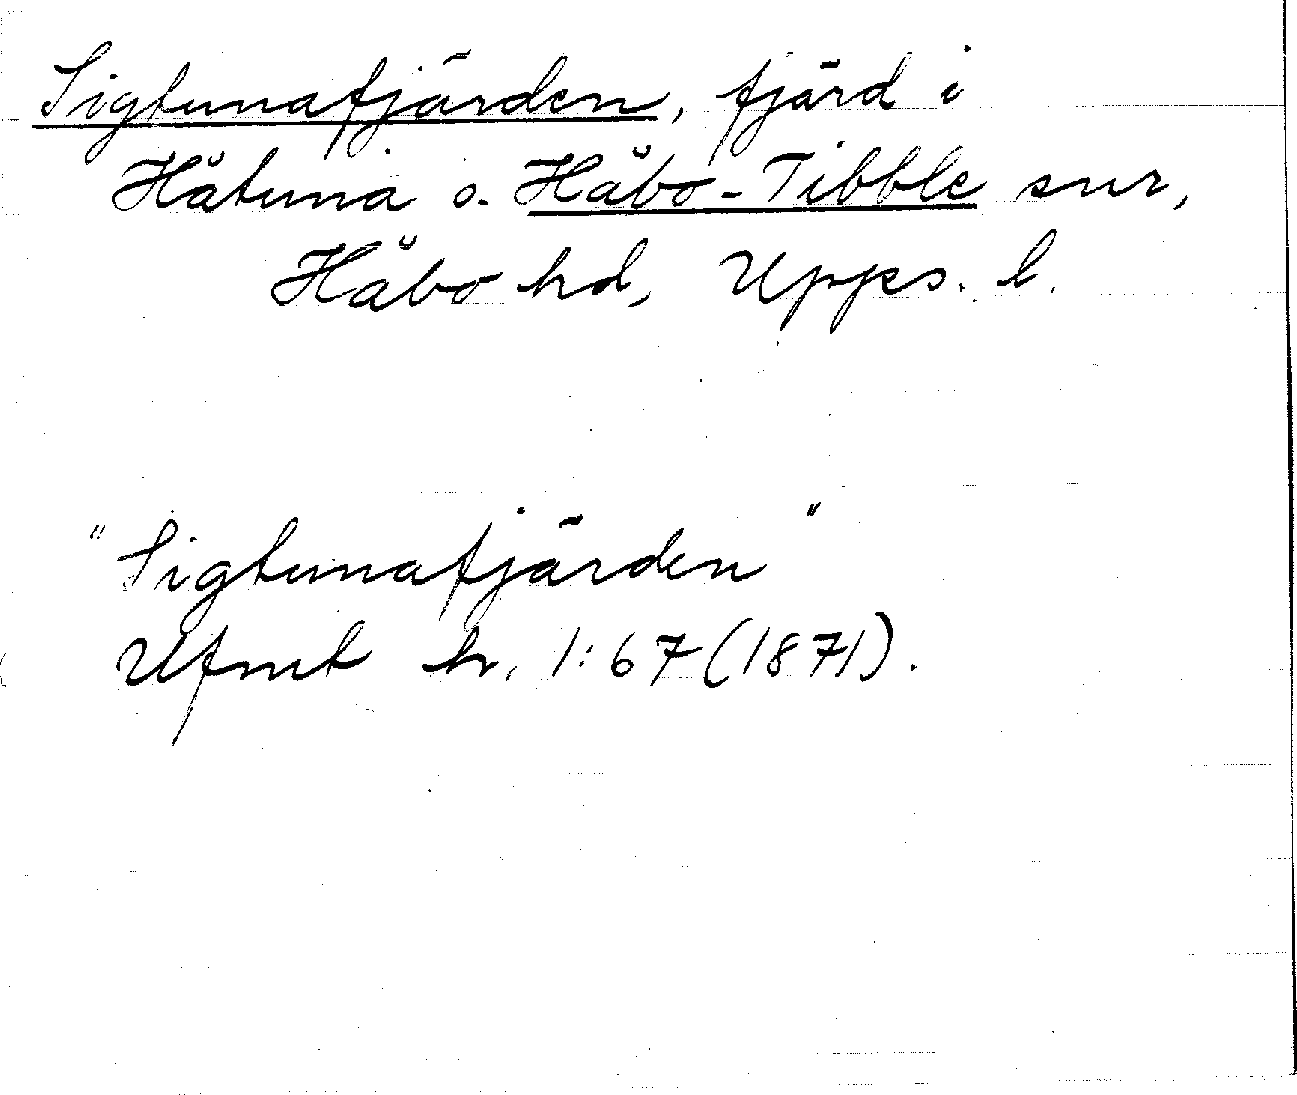 Sigtunafjärden, fjärd i
Håtuna o. Håbo-Tibble snr,
Håbo hd, Upps. l.
"Sigtunafjärden"
Ufmt h. 1:67 (1871).